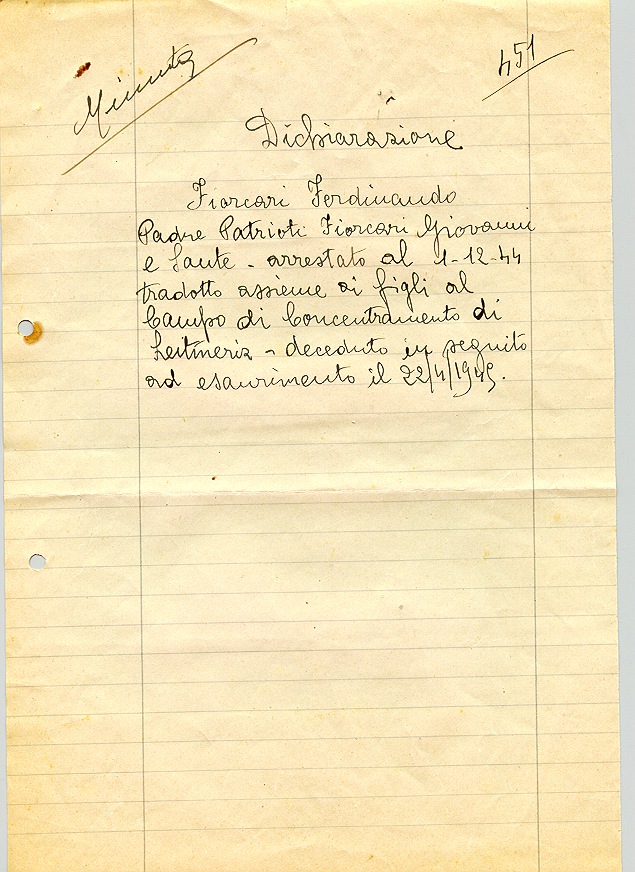 Minuta
451
Dichiarazione
Fiorcari Ferdinando
Padre Patrioti Fiorcari Giovanni
e Sante - arrestato al 1-12-44
tradotto assieme ai figli al
Campo di Concentramento di
Leitmeriz - deceduto in seguito
ad esaurimento il 22/4/1945.